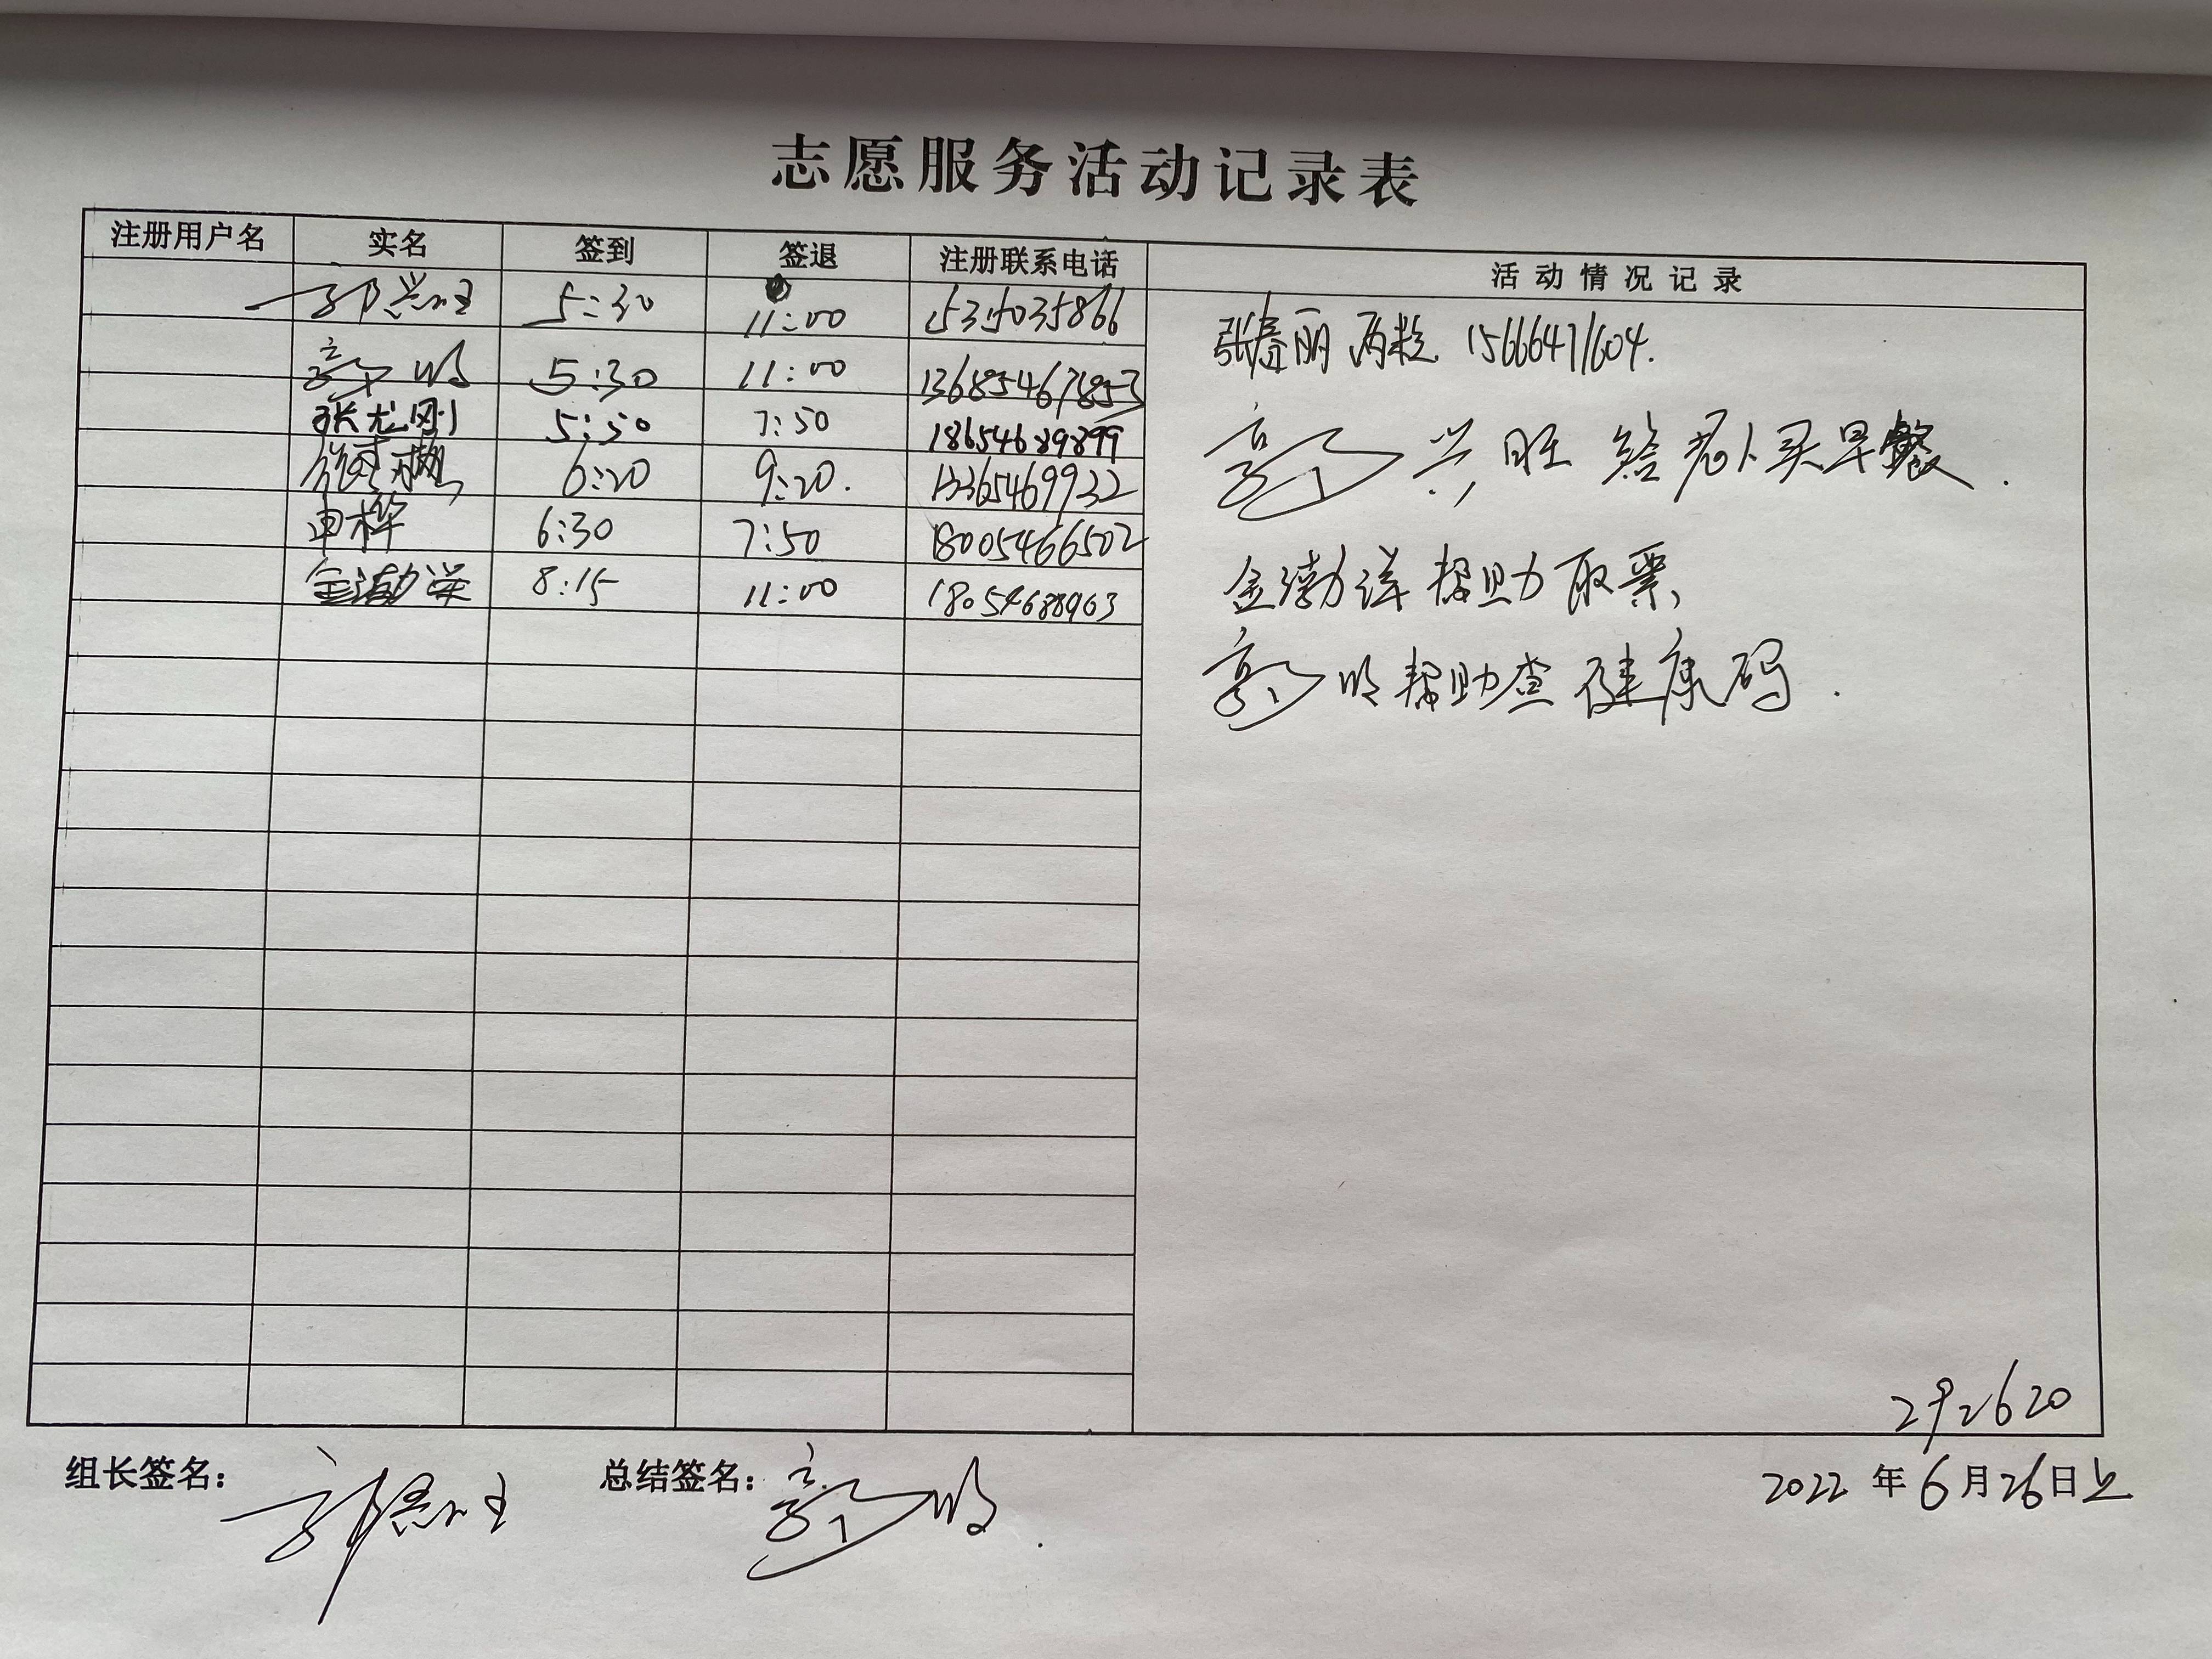 志愿服务活动记录表
注册用户名 实名 签到 签退 注册联系电话 活动情况记录
郭兴旺 5:30 11:00 15315035866
郭明 5:30 11:00
张尤刚 5:50 7:50 18654689899
6:20 9:20. 13365469932
申桦 6:30 7:50 18005466502
金渤洋 8:15 11:00 18054688963
张春丽 两粒 15666471604.
郭兴旺 给老人买早餐.
金渤洋帮助取票,
郭明帮助查健康码.
292620
组长签名: 郭兴旺 总结签名: 郭明. 2022年6月26日上